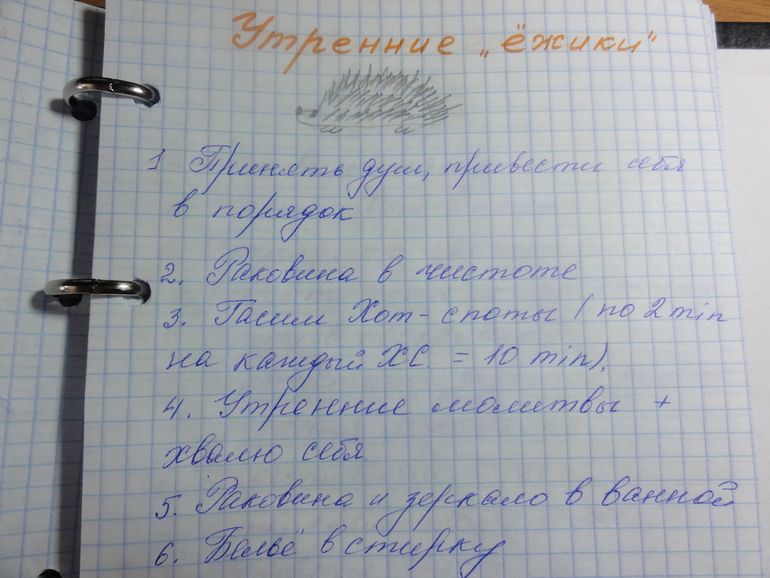 Утренние „ёжики"
1 Принять душ, привести себя
в порядок
2. Раковина в чистоте
3. Гасим Хот-споты (по 2 min
на каждый ХС = 10 min).
4. Утренние молитвы +
хвалю себя
5. Раковина и зеркало в ванной
6. Бельё в стирку